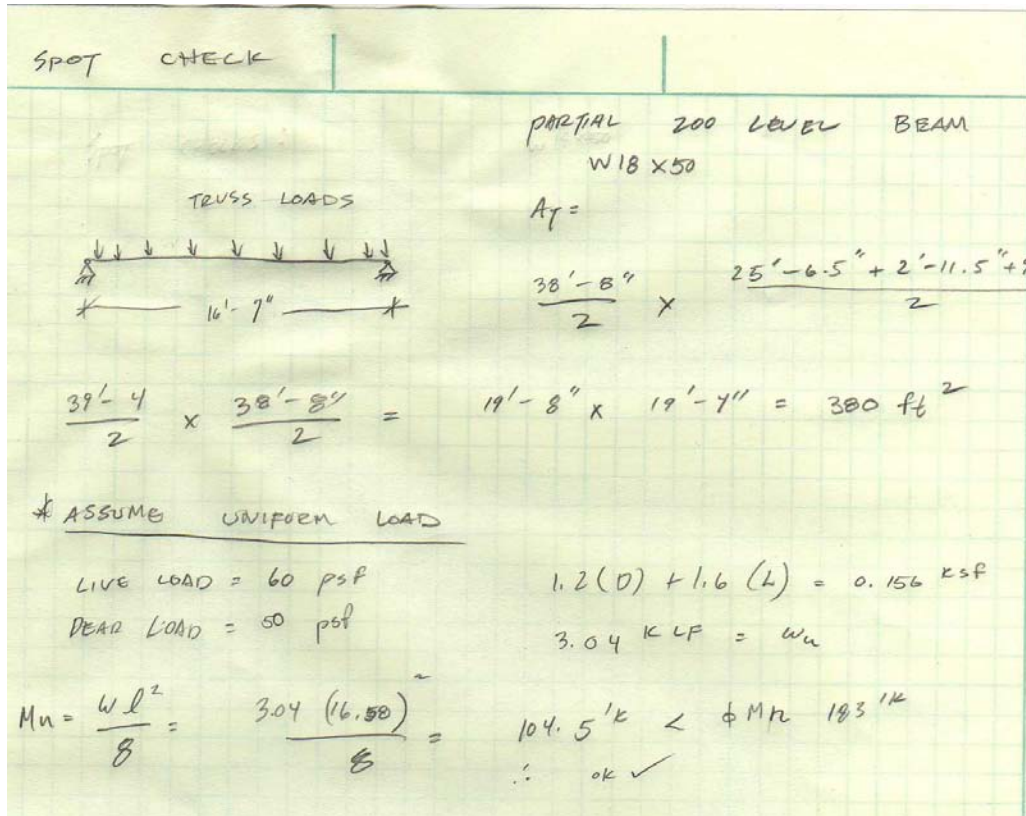 SPOT CHECK
PARTIAL 200 LEVEL BEAM
W18 X50
TRUSS LOADS
A_T =
16'- 7"
38'-8" / 2 × 25'-6.5" + 2'-11.5" + / 2
39'- 4 / 2 × 38'- 8" / 2 = 19'- 8" × 19'- 4" = 380 ft²
* ASSUME UNIFORM LOAD
LIVE LOAD = 60 psf
DEAD LOAD = 50 psf
1.2(D) + 1.6 (L) = 0.156 KSF
3.04 KLF = wu
Mu = wl² / 8 = 3.04 (16.58)² / 8 = 104.5 'K < ϕMn 183 'K
∴ OK ✓